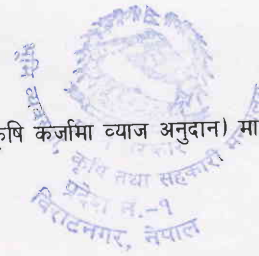 कृषि कर्जामा व्याज अनुदान) मा
भूमि व्यवस्था, कृषि तथा सहकारी
प्रदेश नं.-१
विराटनगर, नेपाल